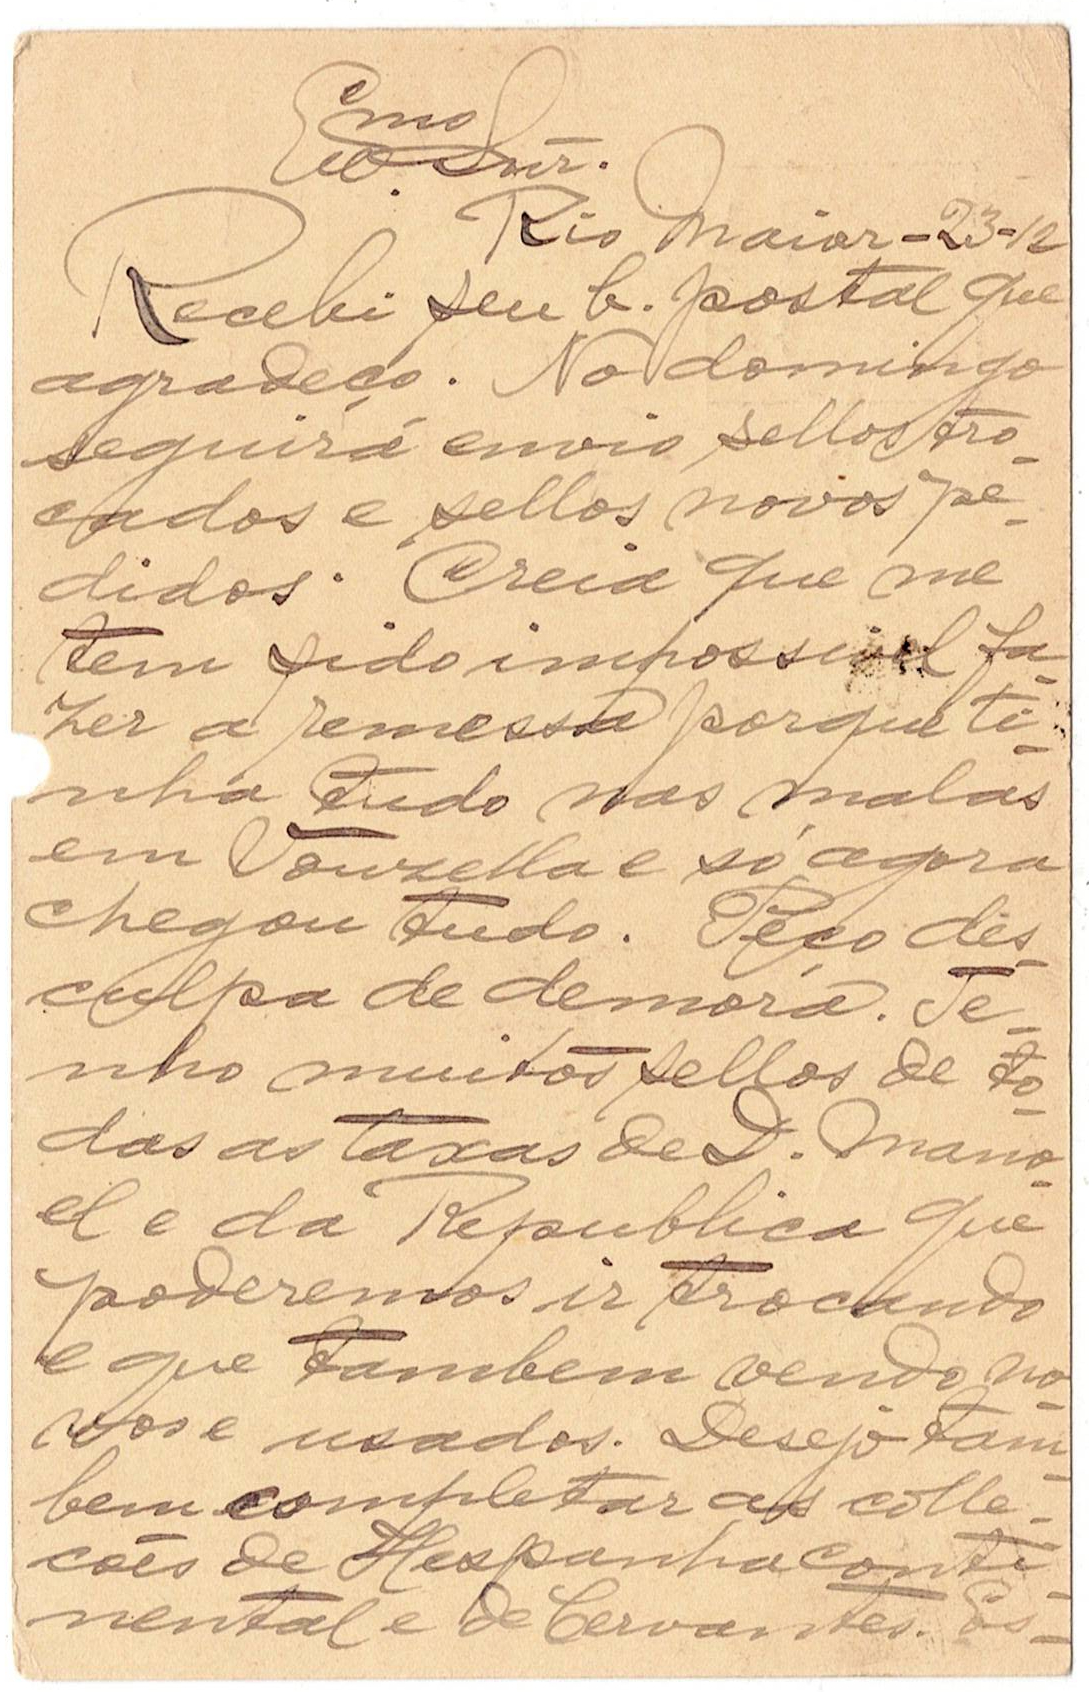 Exmo
Snr.
Rio Maior - 23-12
Recebi seu b. postal que
agradeço. No domingo
seguirá envio sellos tro-
cados e sellos novos pe-
didos. Creia que me
tem sido impossivel fa-
zer a remessa porque ti-
nha tudo nas malas
em Vouzella e só agora
chegou tudo. Peço des-
culpa de demora. Te-
nho muitos sellos de to-
das as taxas de D. Mano-
el e da Republica que
poderemos ir trocando
e que tambem vendo no-
vos e usados. Desejo tam-
bem completar as colle-
cões de Hespanha conti-
nental e de Cervantes. Es-